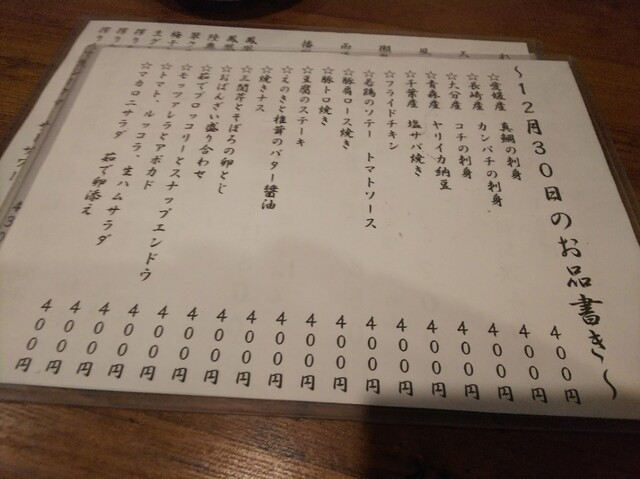 ～12月30日のお品書き～
☆愛媛産 真鯛の刺身 400円
☆長崎産 カンパチの刺身 400円
☆大分産 コチの刺身 400円
☆青森産 ヤリイカ納豆 400円
☆千葉産 塩サバ焼き 400円
☆フライドチキン 400円
☆若鶏のソテー トマトソース 400円
☆豚肩ロース焼き 400円
☆豚トロ焼き 400円
☆豆腐のステーキ 400円
☆えのきと椎茸のバター醤油 400円
☆焼きナス 400円
☆三関芹とそぼろの卵とじ 400円
☆おばんざい盛り合わせ 400円
☆茹でブロッコリーとスナップエンドウ 400円
☆モッツァレラとアボカド 400円
☆トマト、ルッコラ、生ハムサラダ 400円
☆マカロニサラダ 茹で卵添え 400円